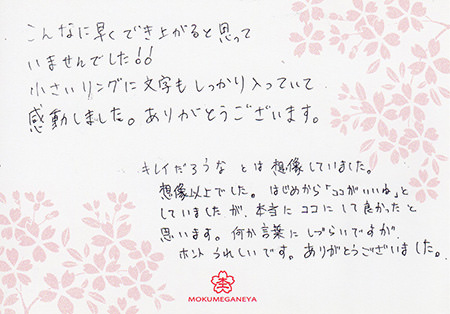 こんなに早くでき上がると思って
いませんでした!!
小さいリングに文字もしっかり入っていて
感動しました。ありがとうございます。
キレイだろうな とは 想像していました。
想像以上でした。はじめから「ココがいいね」と
していましたが、本当に ココにして良かったと
思います。何か言葉に しづらいですが、
ホント うれしいです。ありがとうございました。
MOKUMEGANEYA